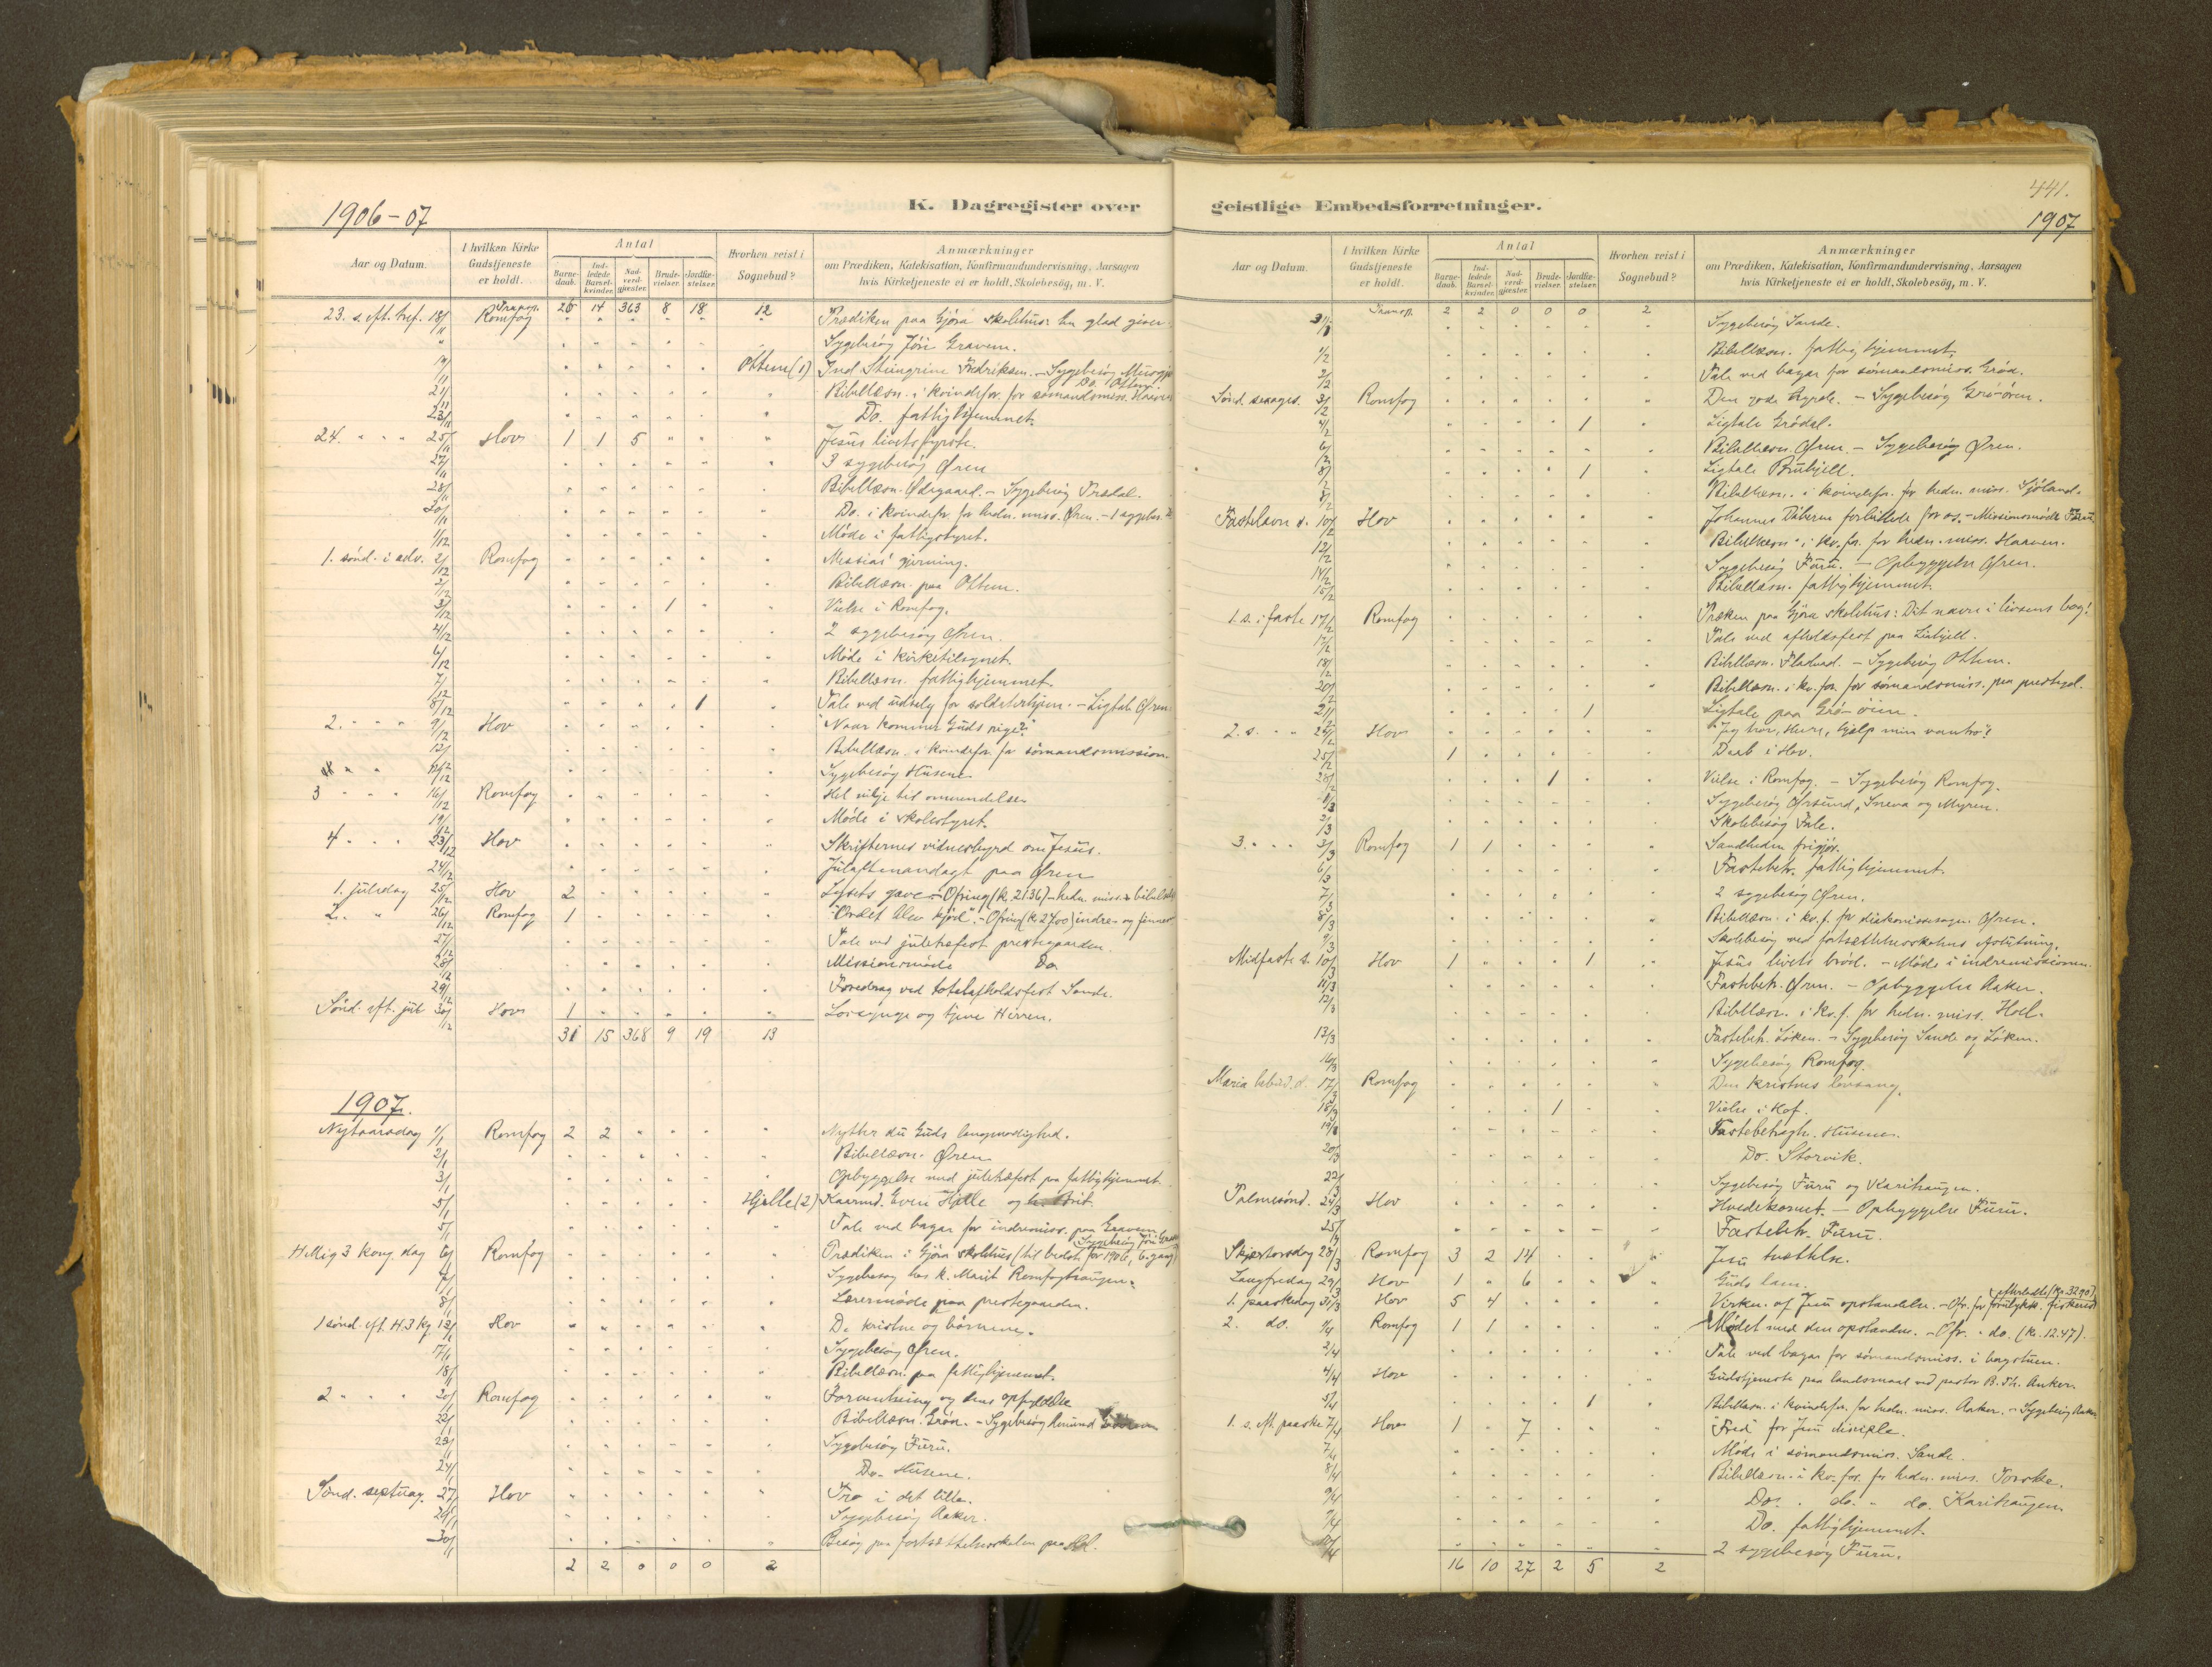 1906-07
K. Dagregister over
Aar og Datum.
I hvilken Kirke Gudstjeneste er holdt.
Antal
Barnedaab.
Indledede Barselkvinder.
Nadverdgjæster.
Brudevielser.
Jordfæstelser.
Hvorhen reist i Sognebud?
Anmærkninger
om Prædiken, Katekisation, Konfirmandundervisning, Aarsagen
hvis Kirketjeneste ei er holdt, Skolebesög, m. V.
Transp. 26 14 363 8 18 12
23. s. eft. tref. 18/11 Romfog " " " " " " Prædiken paa Gjöra skolehus: En glad giver.
" Sygebesög Jöri Gravem.
19/11 Ottem (1) Ind. Steingrim Fredriksen. - Sygebesög
Do. Ottem.
21/11 Bibellæsn. i kvindefor. for sömandsmiss.
23/11 Do. fattighjemmet.
24. " " " 25/11 Hov 1 1 5 " " " Jesus livets fyrste.
27/11 3 sygebesög Øren
28/11 Bibellæsn. Ødegaard. - Sygebesög Fredal.
30/11 Do. i kvindefor. for hedn. miss. Øren. - 1 sygebes.
1/12 Möde i fattigstyret.
1. sönd. i adv. 2/12 Romfog Messias' gjerning.
2/12 Bibellæsn. paa Ottem.
3/12 1 Vielse i Romfog.
4/12 2 sygebesög Øren.
6/12 Möde i kirketilsynet.
7/12 Bibellæsn. fattighjemmet.
8/12 1 Tale ved udsalg for soldaterhjem. - Ligtale Øren.
2. " " " 9/12 Hov "Naar kommer Guds rige?"
12/12 Bibellæsn. i kvindefor. for sömandsmission.
Sygebesög Husene
3 " " " 16/12 Romfog Hel vilje til omvendelse.
19/12 Möde i skolestyret.
4 " " " 23/12 Hov Skrifternes vidnesbyrd om Jesus.
24/12 Juleaftenandagt paa Øren
1. juledag 25/12 Hov 2 Lysets gave. - Ofring (k. 21.36) - hedn. miss. & bibelselsk.
2. " 26/12 Romfog 1 "Ordet blev kjöd". - Ofring (k. 27.00) indre- og finnem.
27/12 Tale ved juletræfest prestegaarden.
28/12 Missionsmöde Do.
29/12 Foredrag ved totalafholdsfest Sande.
Sönd. eft. jul 30/12 Hov 1 Lovsynge og tjene Herren.
31 15 368 9 19 13
1907.
Nytaarsdag 1/1 Romfog 2 2 " " " Nytter du Guds langmodighed.
2/1 Bibellæsn. Øren
3/1 Opbyggelse med juletræfest paa fattighjemmet.
5/1 Hjelle (2) Kaarmd. Even Hjelle og
5/1 Tale ved bazar for indremiss. paa Gravem
Hellig 3 kong. dag 6/1 Romfog Prædiken i Gjöra skolehus (til bedste for 1906, 6. gang)
7/1 Sygebesög hos k. Marit Romfoghaugen.
8/1 Lærermöde paa prestegaarden.
1 sönd. eft. H. 3 kg. 13/1 Hov De kristne og börnene.
17/1 Sygebesög Øren.
18/1 Bibellæsn. paa fattighjemmet.
2 " " " 20/1 Romfog Forventning og dens opfyldelse
22/1 Bibellæsn. Gröa. - Sygebesög
23/1 Sygebesög Furu.
24/1 Do. Husene.
Sönd. septuag. 27/1 Hov Tro i det lille.
29/1 Sygebesög Aaker.
30/1 Besög paa fortsættelsesskolen paa Hol.
2 2 0 0 0 2
441.
1907
geistlige Embedsforretninger.
Aar og Datum.
I hvilken Kirke Gudstjeneste er holdt.
Antal
Barnedaab.
Indledede Barselkvinder.
Nadverdgjæster.
Brudevielser.
Jordfæstelser.
Hvorhen reist i Sognebud?
Anmærkninger
om Prædiken, Katekisation, Konfirmandundervisning, Aarsagen
hvis Kirketjeneste ei er holdt, Skolebesög, m. V.
Transp. 2 2 0 0 0 2
31/1 Sygebesög Sande.
1/2 Bibellæsn. fattighjemmet.
2/2 Tale ved bazar for sömandsmiss. Gröa.
Sönd. sexages. 3/2 Romfog Den gode hyrde. - Sygebesög Grö-ören.
4/2 1 Ligtale Grödal.
6/2 Bibellæsn. Øren. - Sygebesög Øren.
8/2 1 Ligtale Bruhjell.
8/2 Bibellæsn. i kvindefor. for hedn. miss. Sjöland.
Fastelavn s. 10/2 Hov Johannes Döberen forbillede for os. - Missionsmöde Furu
12/2 Bibellæsn. i kv. for. for hedn. miss. Haaven.
14/2 Sygebesög Furu. - Opbyggelse Øren.
15/2 Bibellæsn. fattighjemmet.
1. s. i faste 17/2 Romfog Præken paa Gjöra skolehus: Dit navn i livsens bog!
17/2 Tale ved afholdsfest paa Liahjell.
18/2 Bibellæsn. Fladvad. - Sygebesög Ottem.
20/2 Bibellæsn. i kv. for. for sömandsmiss. paa prestegd.
21/2 1 Ligtale paa Grö-ören.
2. s. " " 24/2 Hov "Jeg tror, Herre, hjælp min vantro!"
25/2 1 Daab i Hov.
28/2 1 Vielse i Romfog. - Sygebesög Romfog.
1/3 Sygebesög Ørsund, Sneva og Myren.
2/3 Skolebesög Fale.
3. " " " 3/3 Romfog 1 1 Sandheden frigjör.
6/3 Fastebetr. fattighjemmet.
7/3 2 sygebesög Øren.
8/3 Bibellæsn. i kv. f. for diakonissesagen. Øren.
9/3 Skolebesög ved fortsættelsesskolens afslutning.
Midfaste s. 10/3 Hov 1 " " " 1 Jesus livets bröd. - Möde i indremissionen.
11/3 Fastebetr. Øren. - Opbyggelse Aaker.
12/3 Bibellæsn. i kv. f. for hedn. miss. Hoel.
13/3 Fastebetr. Löken. - Sygebesög Sande og Löken.
16/3 Sygebesög Romfog.
Maria bebud. d. 17/3 Romfog Den kristnes lovsang.
18/3 1 Vielse i Hof.
19/3 Fastebetragtn. Husene.
20/3 Do. Storvik.
22/3 Sygebesög Furu og Karihaugen.
Palmesönd. 24/3 Hov Hvedekornet. - Opbyggelse Furu.
25/3 Fastebetr. Furu.
Skjærtorsdag 28/3 Romfog 3 2 14 Jesu tvættelse.
Langfredag 29/3 Hov 1 " 6 Guds lam.
efterladte (Kr. 32.90)
1. paaskedag 31/3 Hov 5 4 Virkn. af Jesu opstandelse. - Ofr. for forulykk. fiskeres
2. do. 1/4 Romfog 1 1 Mödet med den opstandne. - Ofr. " do. (kr. 12.47).
2/4 Tale ved bazar for sömandsmiss. i bogstuen.
4/4 Hov Gudstjeneste paa landsmaal ved pastor B. Th. Anker.
5/4 1 Bibellæsn. i kvindefor. for hedn. miss. Aaker. - Sygebesög Aaker
1. s. eft. paaske 7/4 Hov 1 " 7 "Fred" for Jesu disciple.
7/4 Möde i sömandsmiss. Sande.
8/4 Bibellæsn. i kv. for. for hedn. miss. Torske.
9/4 Do. " do. " do. Karihaugen
Do. fattighjemmet.
10/4 2 sygebesög Furu.
16 10 27 2 5 2